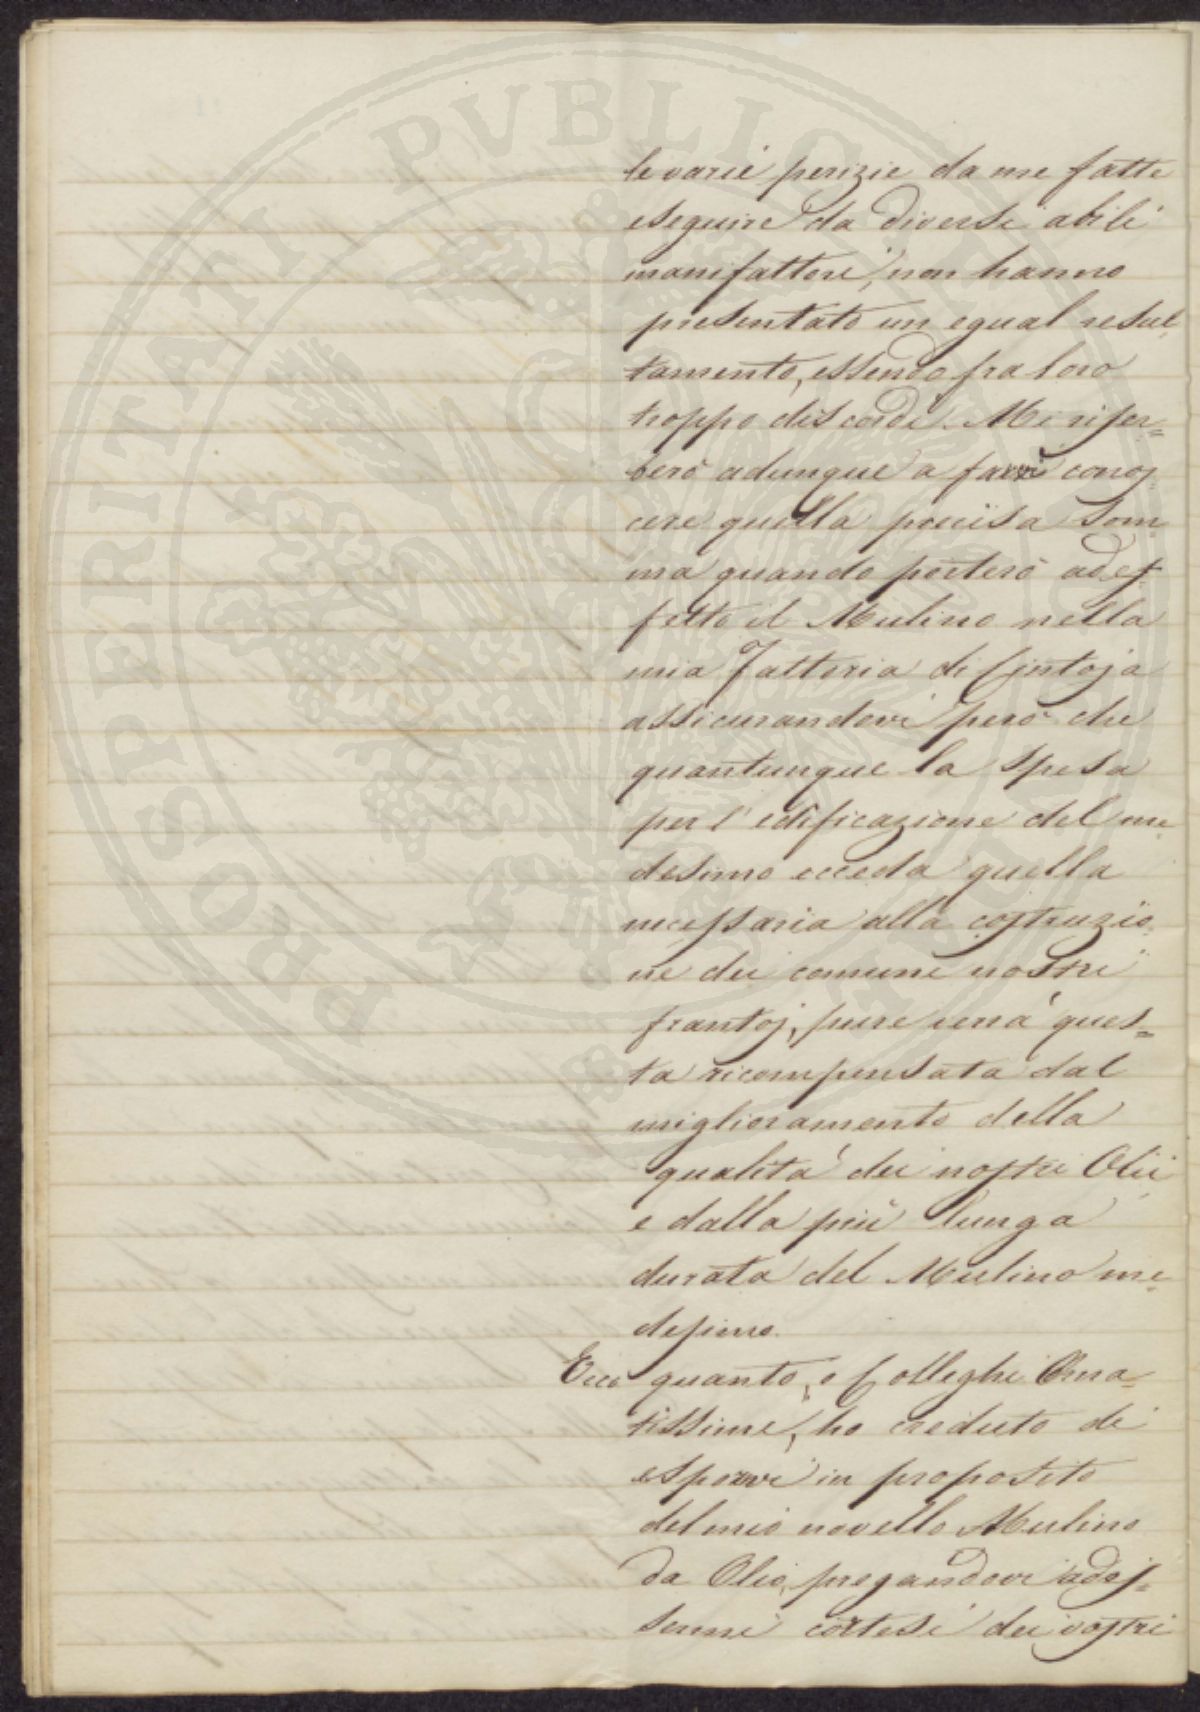 PROSPERITATI PVBLICAE
le varie perizie da me fatte
eseguire da diversi abili
manifattori, non hanno
presentato un egual resul=
tamento, essendo fra loro
troppo discordi. Mi riser=
berò adunque a farvi conos=
cere quella precisa som=
ma quando porterò ad ef=
fetto il Mulino nella
mia Fattoria di Cintoja
assicurandovi però che
quantunque la spesa
per l'edificazione del me=
desimo ecceda quella
necessaria alla costruzio=
ne dei comuni nostri
frantoj, pure verrà ques=
ta ricompensata dal
miglioramento della
qualità dei nostri Olii
e dalla più lunga
durata del Mulino me=
desimo.
Ecco quanto, o Colleghi Orna=
tissimi, ho creduto di
esporvi in proposito
del mio novello Mulino
da Olio, pregandovi ad es=
sermi cortesi dei vostri